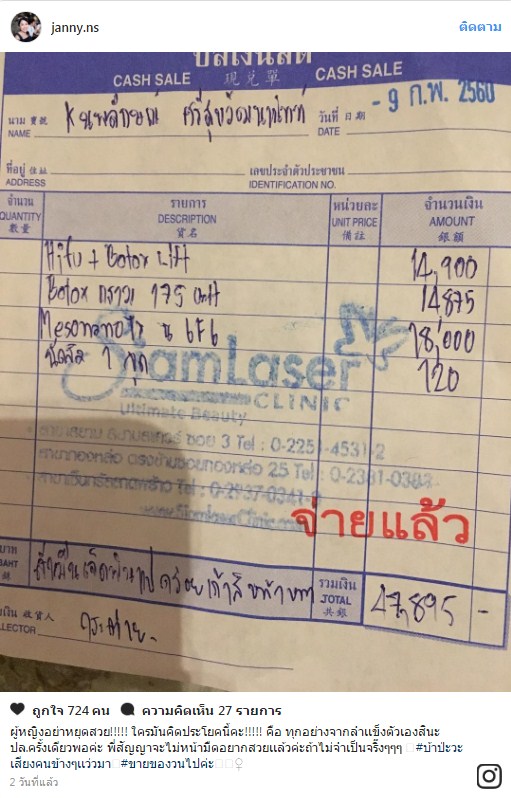 janny.ns
ติดตาม
บิลเงินสด
CASH SALE 現兌單 CASH SALE
นาม 寶號
NAME
วันที่ 日期 - 9 ก.พ. 2560
DATE
ที่อยู่ 住址
ADDRESS
เลขประจำตัวประชาชน
IDENTIFICATION NO.
จำนวน รายการ หน่วยละ จำนวนเงิน
QUANTITY DESCRIPTION UNIT PRICE AMOUNT
數量 貨名 備註 銀額
Hifu + Botox Lift 14,900
Botox กราม 175 unit 14875
18,000
1 ชุด 120
SiamLaser
CLINIC
Ultimate Beauty
สาขาสยาม สยามสแควร์ ซอย 3 Tel : 0-2251-4531-2
สาขาทองหล่อ ตรงข้ามซอยทองหล่อ 25 Tel : 0-2381-0383
สาขาเซ็นทรัลลาดพร้าว Tel : 0-2937-0341-2
www.SiamLaserClinic.com
จ่ายแล้ว
บาท
BAHT
สี่หมื่นเจ็ดพันแปดร้อยเก้าสิบห้าบาท
รวมเงิน
TOTAL
共銀
47,895 -
收貨人
COLLECTOR
ถูกใจ 724 คน ความคิดเห็น 27 รายการ
ผู้หญิงอย่าหยุดสวย!!!!! ใครมันคิดประโยคนี้คะ!!!!! คือ ทุกอย่างจากลำแข้งตัวเองสินะ
ปล.ครั้งเดียวพอค่ะ พี่สัญญาจะไม่หน้ามืดอยากสวยแล้วค่ะถ้าไม่จำเป็นจริงๆๆๆ #บ้าป่ะวะ
เสียงคนข้างๆแว่วมา #ขายของวนไปค่ะ
2 วันที่แล้ว